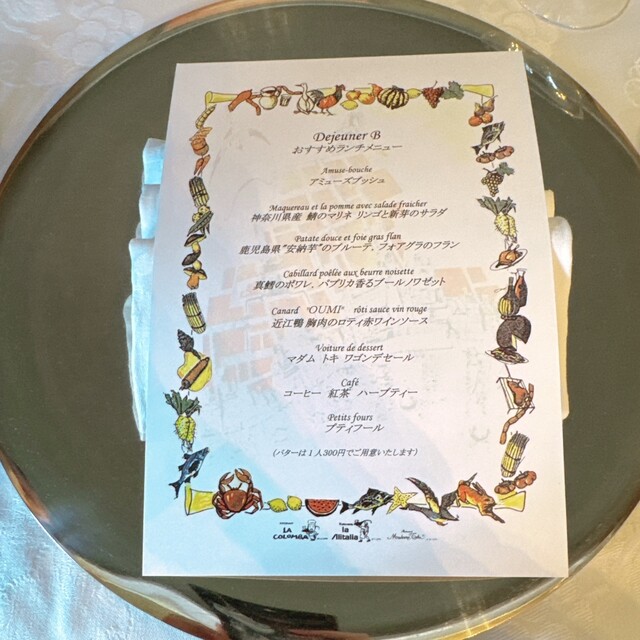 Dejeuner B
おすすめランチメニュー
Amuse-bouche
アミューズブッシュ
Maquereau et la pomme avec salade fraicher
神奈川県産 鯖のマリネ リンゴと新芽のサラダ
Patate douce et foie gras flan
鹿児島県"安納芋"のブルーテ、フォアグラのフラン
Cabillard poêlée aux beurre noisette
真鱈のポワレ、パプリカ香るブールノワゼット
Canard "OUMI" rôti sauce vin rouge
近江鴨 胸肉のロティ赤ワインソース
Voiture de dessert
マダム トキ ワゴンデセール
Café
コーヒー 紅茶 ハーブティー
Petits fours
プティフール
(バターは1人300円でご用意いたします)
LA COLOMBA
la Alitalia